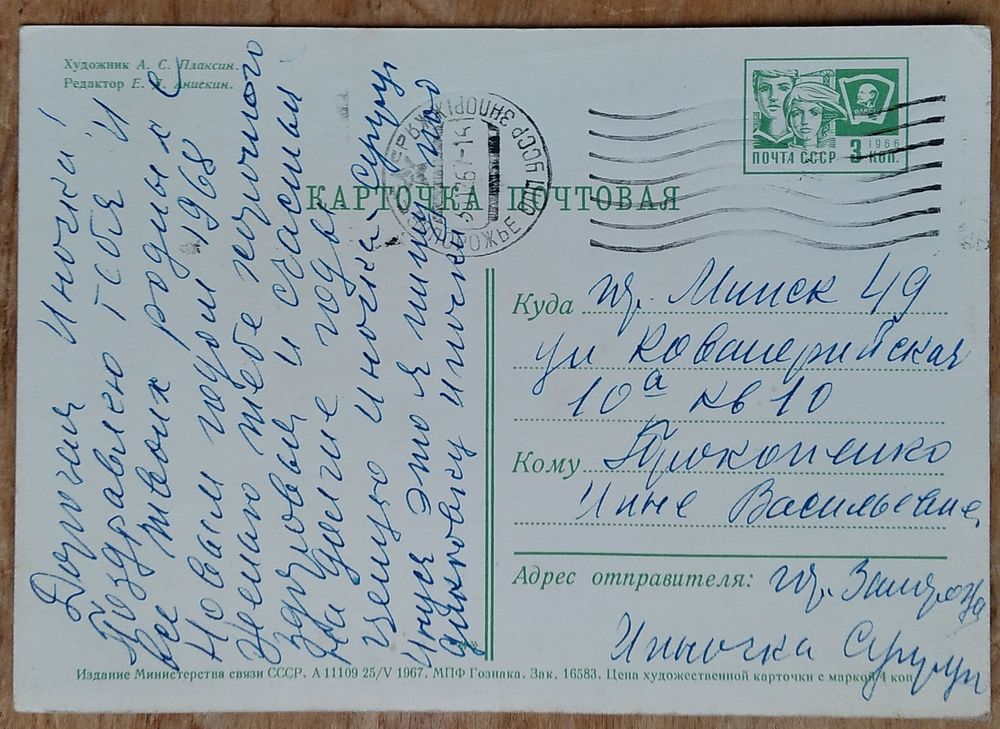 Художник А. С. Плаксин.
Редактор Е. Д. Анискин.
ВЛКСМ
1966
ПОЧТА СССР 3 КОП.
КАРТОЧКА ПОЧТОВАЯ
Дорогая Иночка!
Поздравляю тебя и
все твоих родных с
Новым годом 1968
Желаю тебе отличного
здоровья и счастья
На долгие годы
целую Иночка
Инуся это я пишу
Куда гр. Минск 49
ул Ковалерийская
10а кв 10
Кому Прокопенко
Инне Васильевне.
Адрес отправителя: гр.
Издание Министерства связи СССР. А 11109 25/V 1967. МПФ Гознака. Зак. 16583. Цена художественной карточки с маркой 4 коп.